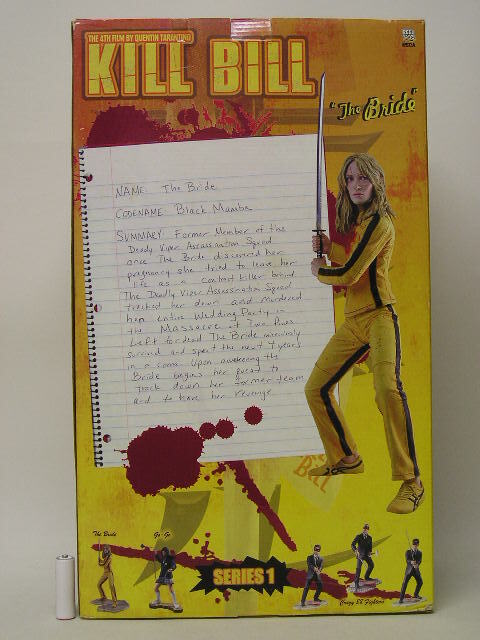 THE 4TH FILM BY QUENTIN TARANTINO
KILL BILL
NECA
"The Bride"
NAME: The Bride
CODENAME: Black Mamba
SUMMARY: Former Member of the
Deadly Viper Assassination Squad
once The Bride discovered her
pregnancy she tried to leave her
life as a contract killer behind
The Deadly Viper Assassination Squad
tracked her down and murdered
her entire Wedding Party in
the Massacre at Two Pines
Left for dead The Bride miraculously
survived and spent the next 4 years
in a coma. Upon awakening the
Bride begins her quest to
track down her former team
and to have her revenge.
Bill
The Bride
Go-Go
SERIES 1
Crazy 88 Fighters